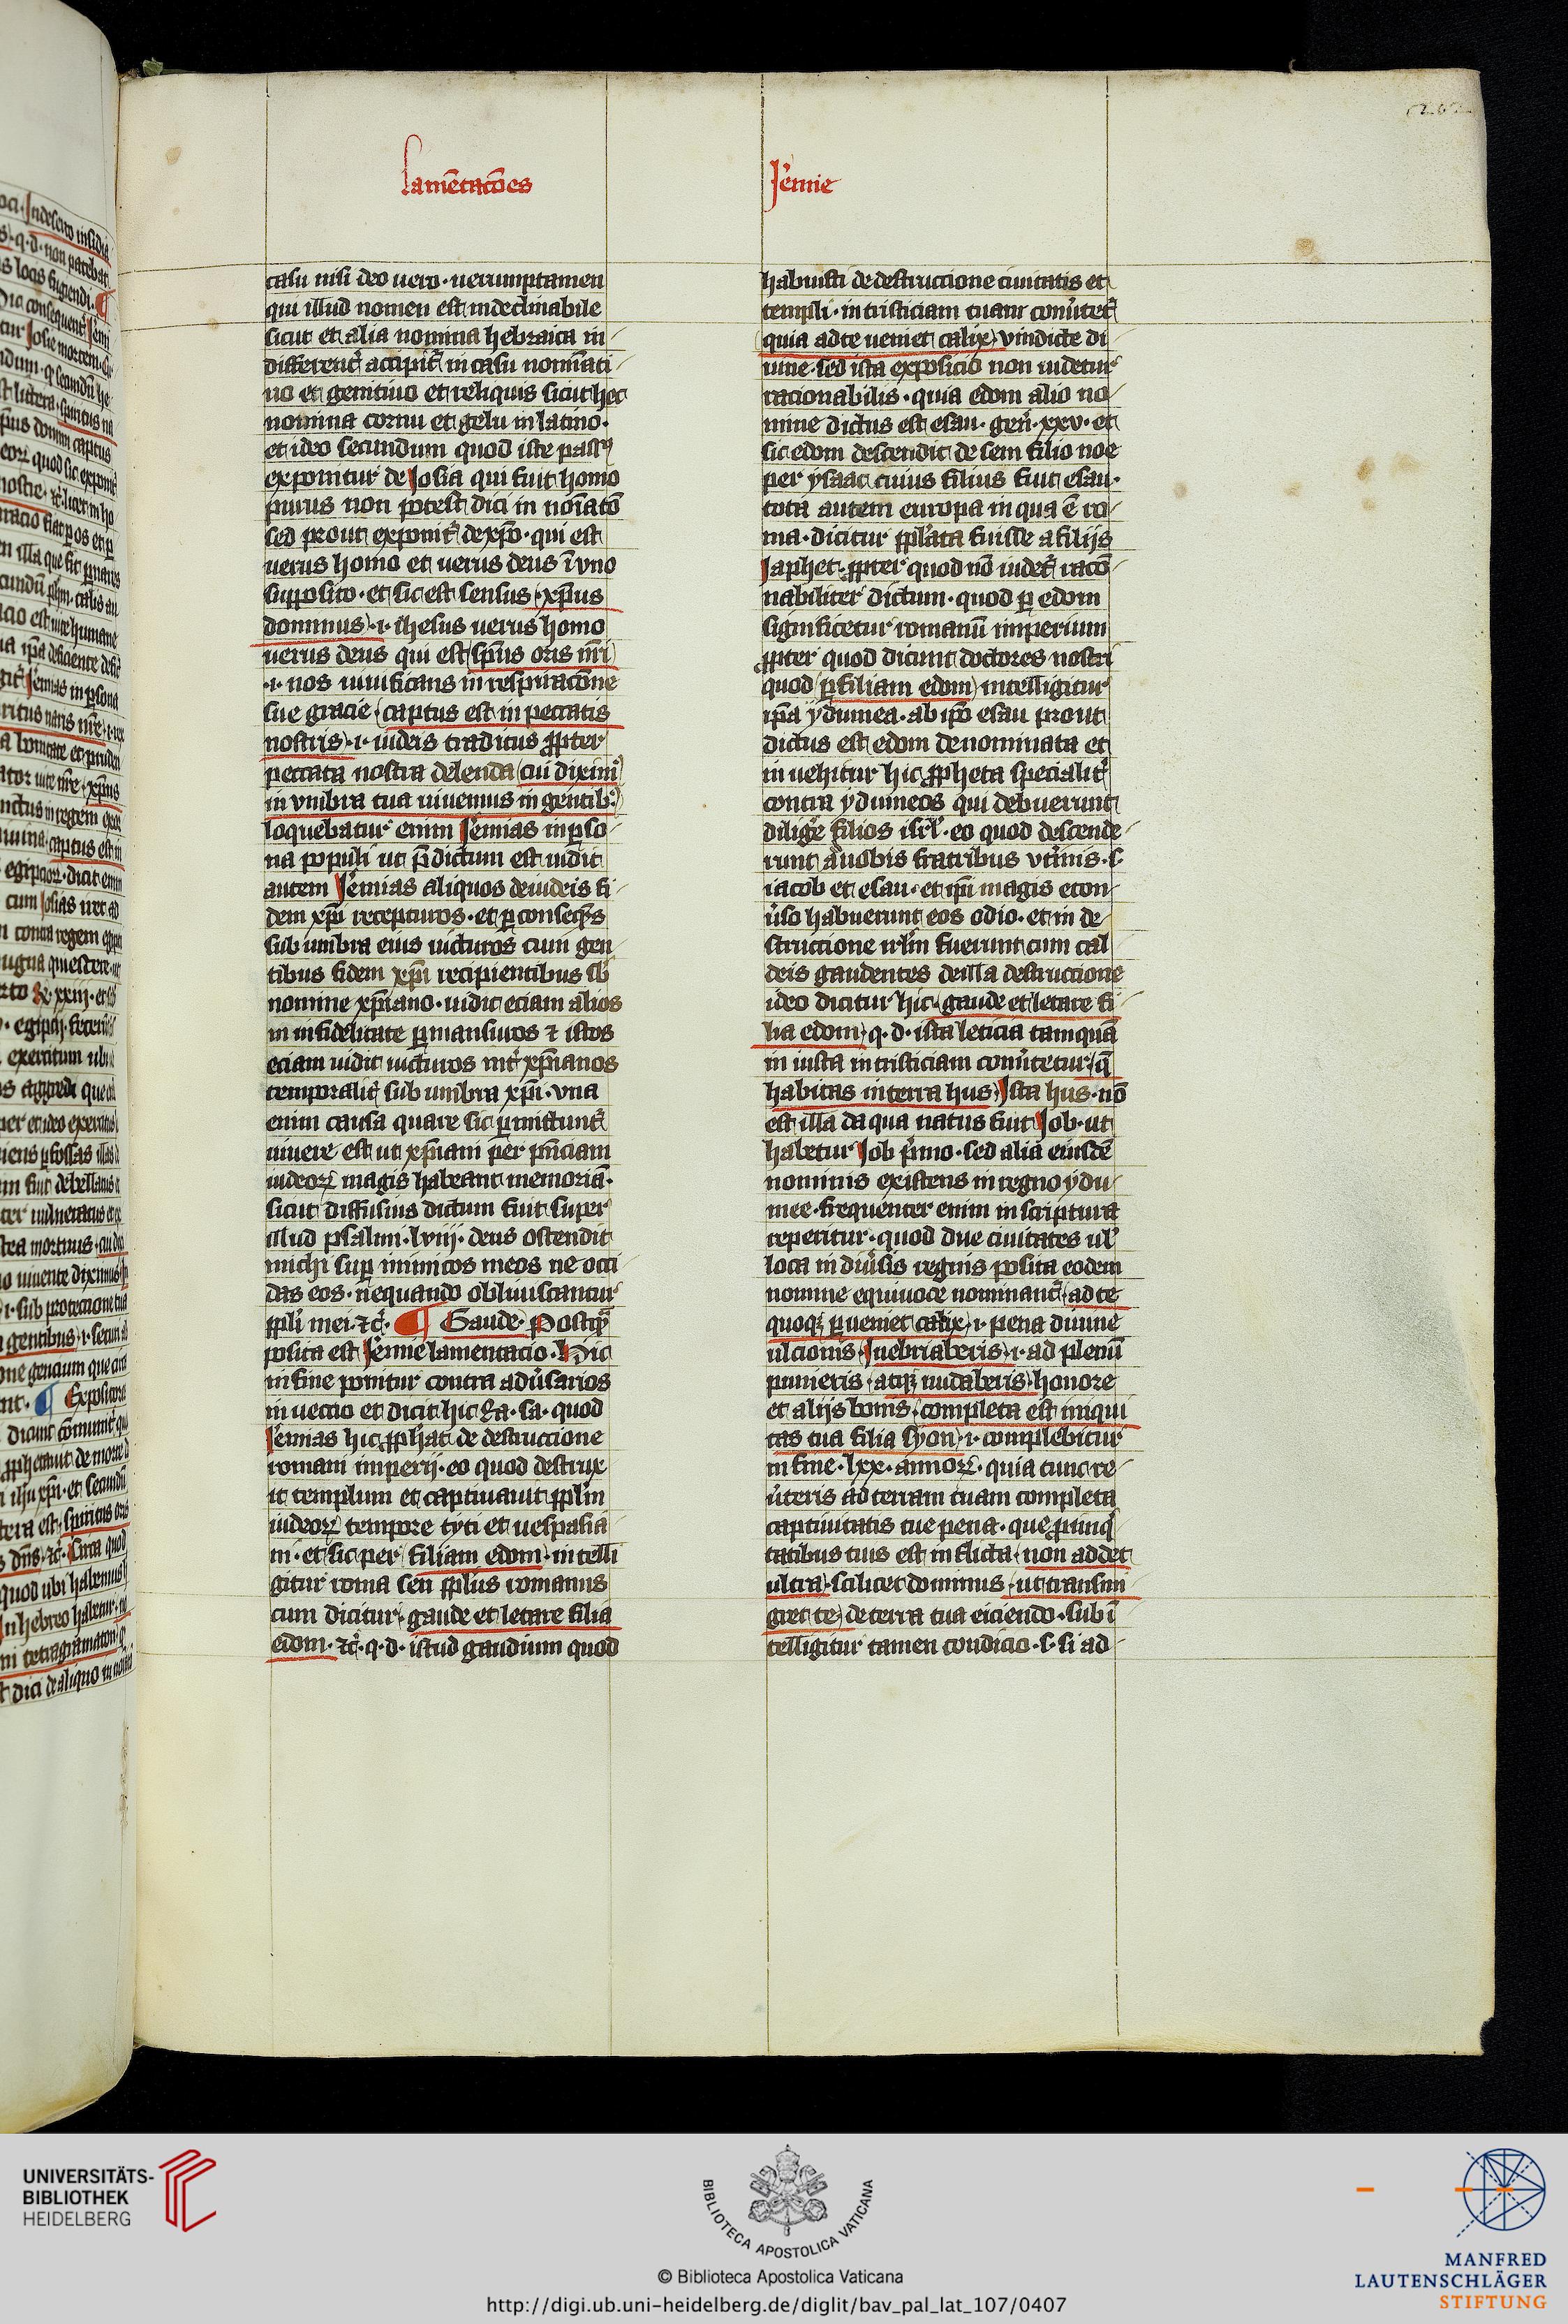 lamētacōes
Jeꝛemie
casu nisi deo uero · uerumptamen
qui illud nomen est indeclinabile
sicut et alia nomina hebraica in-
differenť accipiť in casu noīati-
uo et genitiuo et reliquis sicut hec
nomina cornu et gelu in latino ·
et ideo secundum quod iste passꝰ
exponitur de Josia qui fuit homo
purus non potest dici in noīatō
sed prout exponiť de xp̄o · qui est
uerus homo et uerus deus ī vno
supposito · et sic est sensus · xp̄us
dominus · i · ihesus uerus homo
uerus deus qui est sp̄us oris nr̄i
· i · nos uiuificans in respiracōne
sue gracie captus est in peccatis
nostris · i · iudeis traditus ꝓpter
peccata nostra delenda cui diximꝰ
in vmbra tua uiuemus in gentibꝰ
loquebatur enim Jeꝛemias in ꝑso-
na populi ut p̄dictum est uidit
autem Jeꝛemias aliquos de iudeis fi-
dem xp̄i recepturos · et ꝑ conseqn̄s
sub umbra eius uicturos cum gen-
tibus fidem xp̄i recipientibus sb̄
nomine xp̄iano · uidit eciam alios
in infidelitate ꝑmansuros ⁊ istos
eciam uidit uicturos inť xp̄ianos
temporaliť sub umbra xp̄i · vna
enim causa quare sic ꝑmittunť
uiuere est ut xp̄iani per pn̄ciam
iudeoꝝ magis habeant memoriā ·
sicut diffusius dictum fuit super
illud psalmi · lviij · deus ostendit
michi suꝑ inimicos meos ne occi
das eos · nequando obliuiscantur
ppli mei · ⁊c̄ · ¶ Gaude · Postq̄
posita est Jeꝛemie lamentacio · Hic
in fine ponitur contra adūsarios
inuectio et dicit hic Ra · sa · quod
Jeꝛemias hic ꝓphat de destruccione
romani imperij · eo quod destrux-
it templum et captiuauit pplm
iudeoꝝ tempore tyti et uespasia-
ni · et sic per filiam edom · intelli
gitur roma seu pplus romanus
cum dicitur · gaude et letare filia
edom · ⁊c̄ · q · d · istud gaudium quod
habuisti de destruccione ciuitatis et
templi · in tristiciam tuam conūteť
quia ad te ueniet calix vindicte di-
uine · sed ista exposicio non uidetur
racionabilis · quia edom alio no-
mine dictus est esau · gen̄ · xxv · et
sic edom descendit de sem filio noe
per ysaac cuius filius fuit esau ·
tota autem europa in qua ē ro-
ma · dicitur pplata fuisse a filijs
Japhet · ꝓpter quod nō uideť racō-
nabiliter dictum · quod ꝑ edom
significetur romanū imperium
ꝓpter quod dicunt doctores nostri
quod ꝑ filiam edom intelligitur
ip̄a ydumea · ab ip̄o esau prout
dictus est edom denominata et
inuehitur hic ꝓpheta specialiť
contra ydumeos qui debuerunt
diligere filios isrl̄ · eo quod descende-
runt a duobis fratribus vterinis · s ·
iacob et esau · et ip̄i magis econ-
ūso habuerunt eos odio · et in de-
struccione irl̄m fuerunt cum cal-
deis gaudentes de illa destruccione
ideo dicitur hic · gaude et letare fi-
lia edom q · d · ista leticia tamquā
iniusta in tristiciam conūtetur · q̄
habitas in terra hus · Ista hus · nō
est illa da qua natus fuit Job · ut
habetur Job p̄mo · sed alia eiusdē
nominis existens in regno ydu-
mee · frequenter enim in scriptura
reperitur · quod due ciuitates ul̄
loca in diūsis regnis posita eodem
nomine equiuoce nominanť · ad te
quoqꝫ ꝑueniet calix i · pena diuine
ulcionis · Inebriaberis · i · ad plenū
punieris · atqꝫ nudaberis · honore
et alijs bonis · completa est iniqui
tas tua filia syon · i · complebitur
in fine · lxx · annoꝝ · quia tunc re-
ūteris ad terram tuam completa
captiuitatis tue pena · que p̄niqͥ-
tatibus tuis est inflicta · non addet
ultra · scilicet dominus · ut transmi
gret te de terra tua eiciendo · subī-
telligitur tamen condicio · s · si ad-
UNIVERSITÄTS-
BIBLIOTHEK
HEIDELBERG
BIBLIOTECA APOSTOLICA VATICANA
© Biblioteca Apostolica Vaticana
http://digi.ub.uni-heidelberg.de/diglit/bav_pal_lat_107/0407
MANFRED
LAUTENSCHLÄGER
STIFTUNG